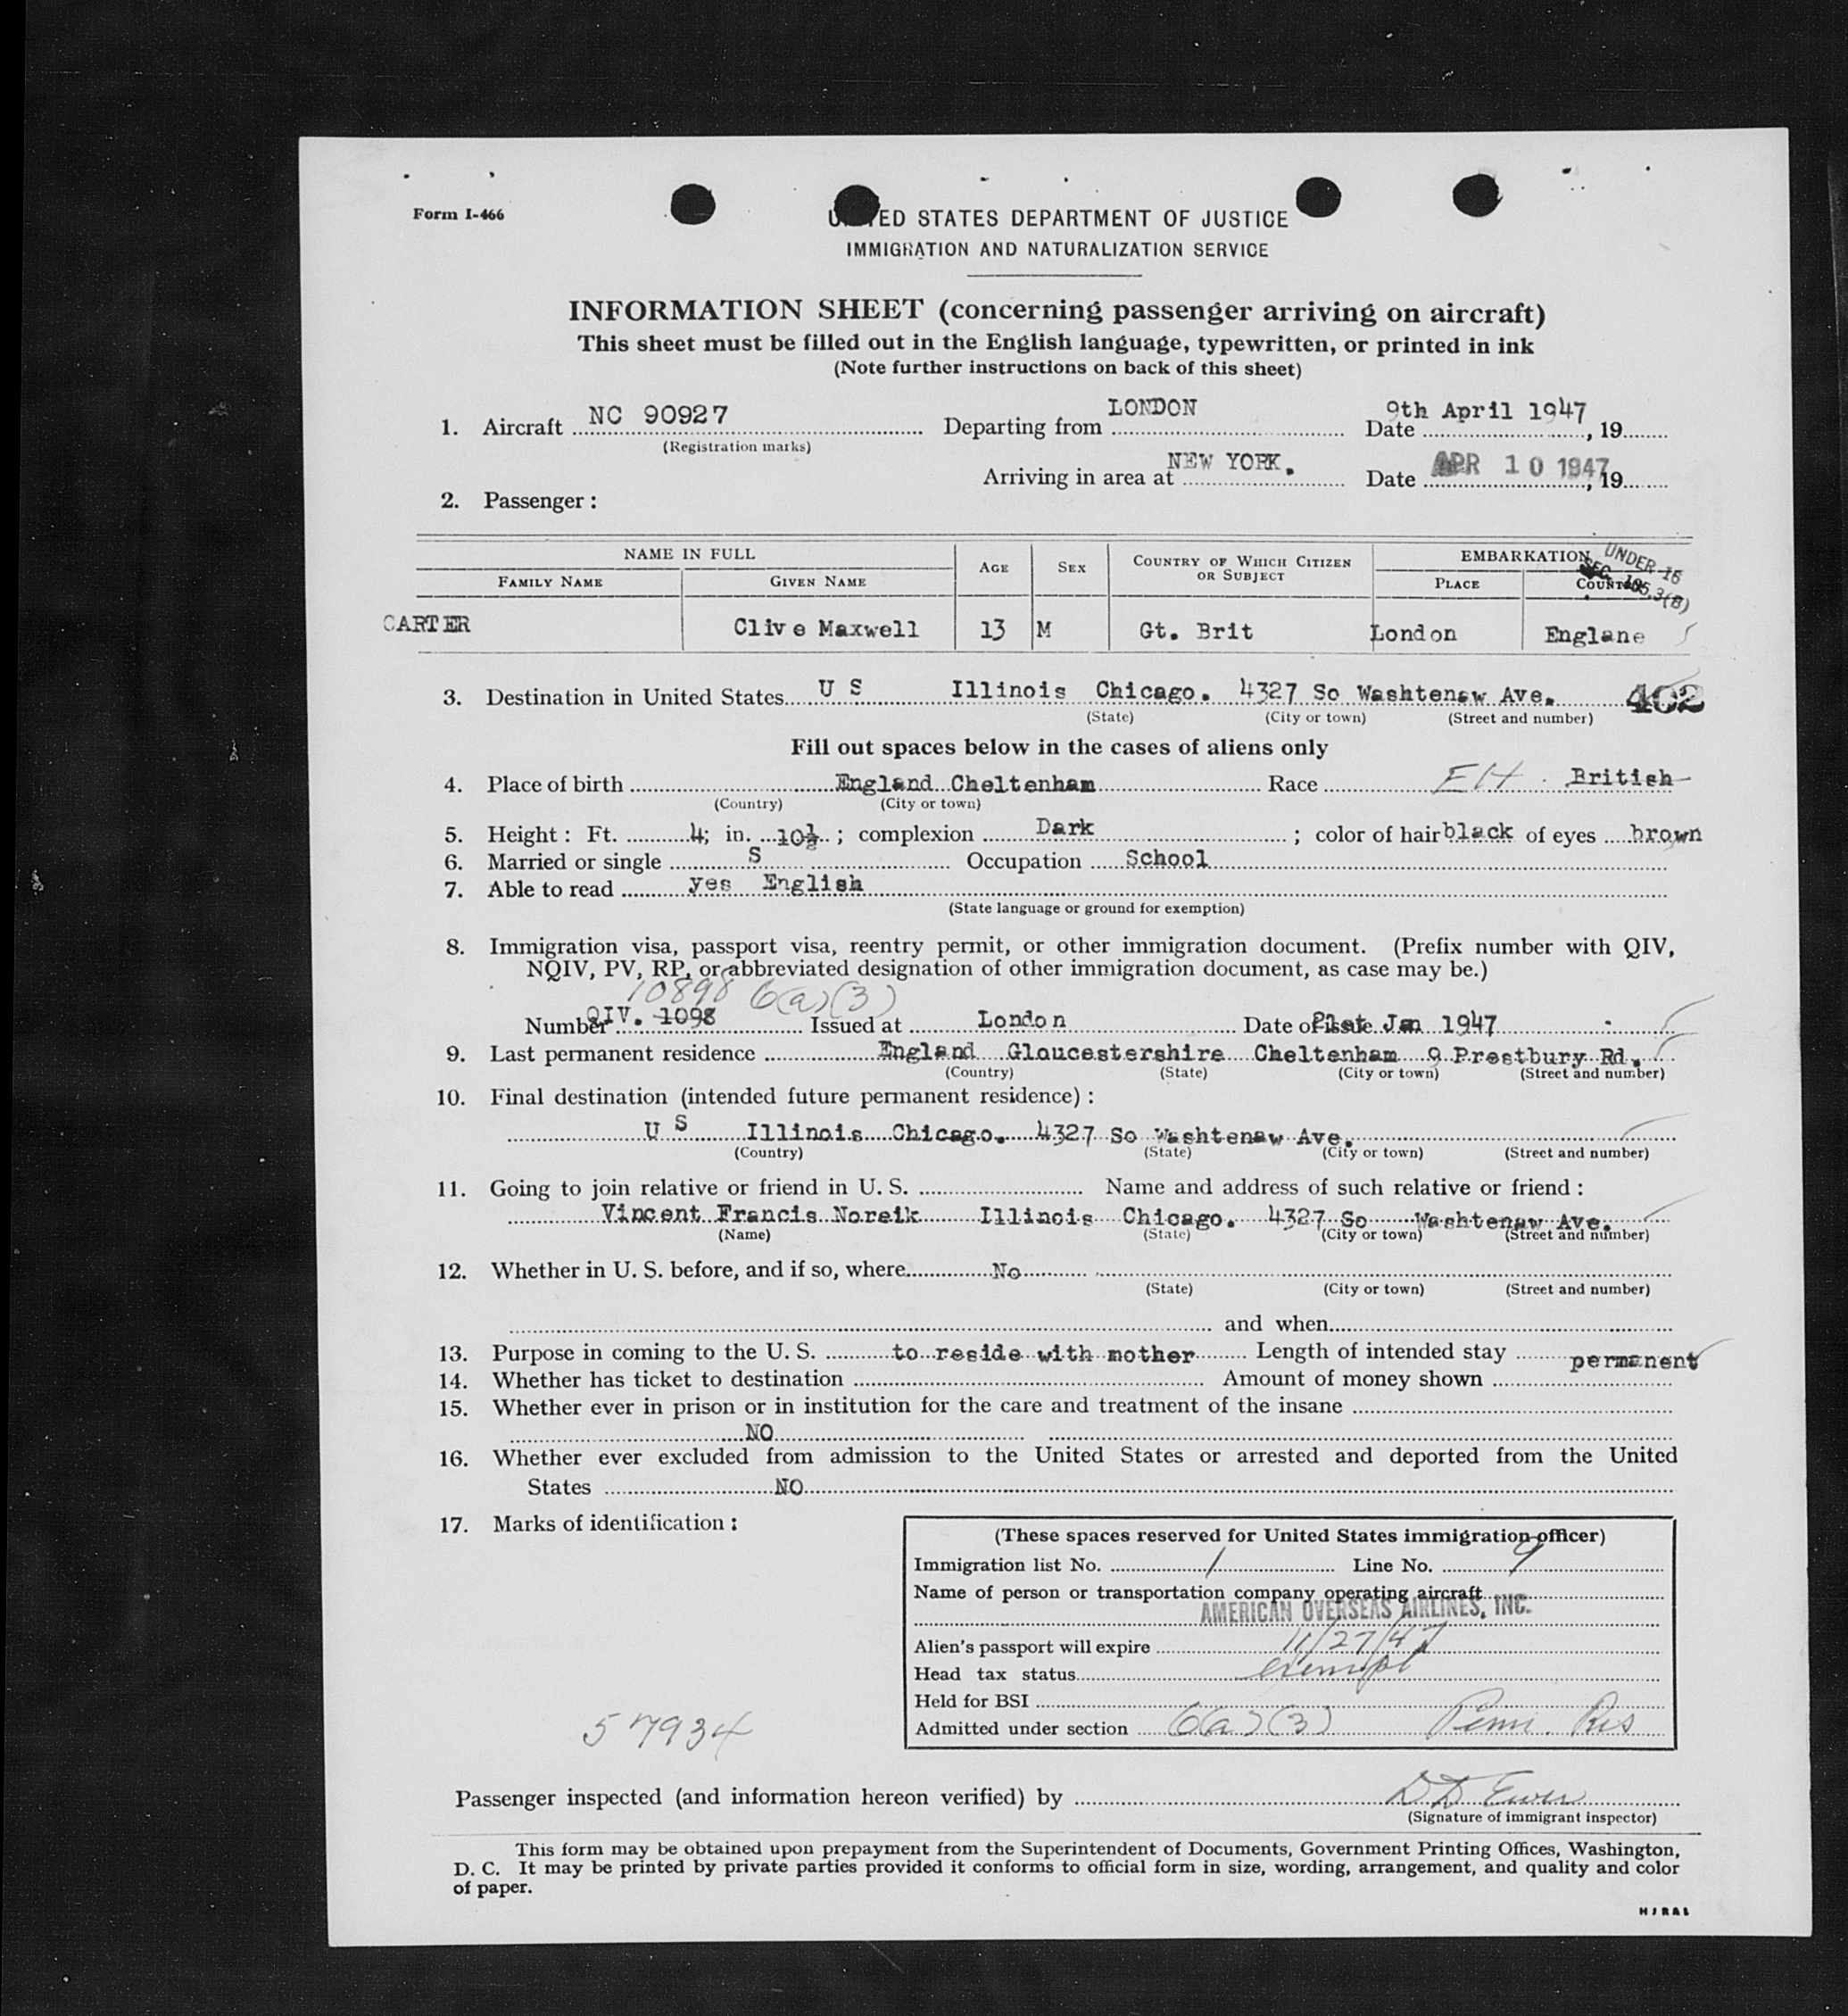 Form I-466
UNITED STATES DEPARTMENT OF JUSTICE
IMMIGRATION AND NATURALIZATION SERVICE
INFORMATION SHEET (concerning passenger arriving on aircraft)
This sheet must be filled out in the English language, typewritten, or printed in ink
(Note further instructions on back of this sheet)
1. Aircraft NC 90927 Departing from LONDON Date 9th April 1947, 19
(Registration marks)
Arriving in area at NEW YORK. Date APR 10 1947, 19
2. Passenger:
NAME IN FULL AGE SEX COUNTRY OF WHICH CITIZEN OR SUBJECT EMBARKATION UNDER 16
FAMILY NAME GIVEN NAME PLACE COUNTRY SEC. 105.3(B)
CARTER Clive Maxwell 13 M Gt. Brit London Englane
3. Destination in United States U S Illinois Chicago. 4327 So Washtenaw Ave. 402
(State) (City or town) (Street and number)
Fill out spaces below in the cases of aliens only
4. Place of birth England Cheltenham Race British
(Country) (City or town)
5. Height: Ft. 4; in. 10½; complexion Dark; color of hair black of eyes brown
6. Married or single S Occupation School
7. Able to read yes English
(State language or ground for exemption)
8. Immigration visa, passport visa, reentry permit, or other immigration document. (Prefix number with QIV,
NQIV, PV, RP, or abbreviated designation of other immigration document, as case may be.)
10898 6(a)(3)
Number QIV. 1098 Issued at London Date of issue 21st Jan 1947
9. Last permanent residence England Gloucestershire Cheltenham 9 Prestbury Rd.
(Country) (State) (City or town) (Street and number)
10. Final destination (intended future permanent residence):
U S Illinois Chicago. 4327 So Washtenaw Ave.
(Country) (State) (City or town) (Street and number)
11. Going to join relative or friend in U. S. Name and address of such relative or friend:
Vincent Francis Noreik Illinois Chicago. 4327 So Washtenaw Ave.
(Name) (State) (City or town) (Street and number)
12. Whether in U. S. before, and if so, where No
(State) (City or town) (Street and number)
and when
13. Purpose in coming to the U. S. to reside with mother Length of intended stay permanent
14. Whether has ticket to destination Amount of money shown
15. Whether ever in prison or in institution for the care and treatment of the insane
NO
16. Whether ever excluded from admission to the United States or arrested and deported from the United
States NO
17. Marks of identification:
(These spaces reserved for United States immigration officer)
Immigration list No. 1 Line No. 9
Name of person or transportation company operating aircraft
AMERICAN OVERSEAS AIRLINES, INC.
Alien's passport will expire 11/27/47
Head tax status exempt
Held for BSI
Admitted under section 6(a)(3) Perm. Res
57934
Passenger inspected (and information hereon verified) by D D Ewer
(Signature of immigrant inspector)
This form may be obtained upon prepayment from the Superintendent of Documents, Government Printing Offices, Washington,
D. C. It may be printed by private parties provided it conforms to official form in size, wording, arrangement, and quality and color
of paper.